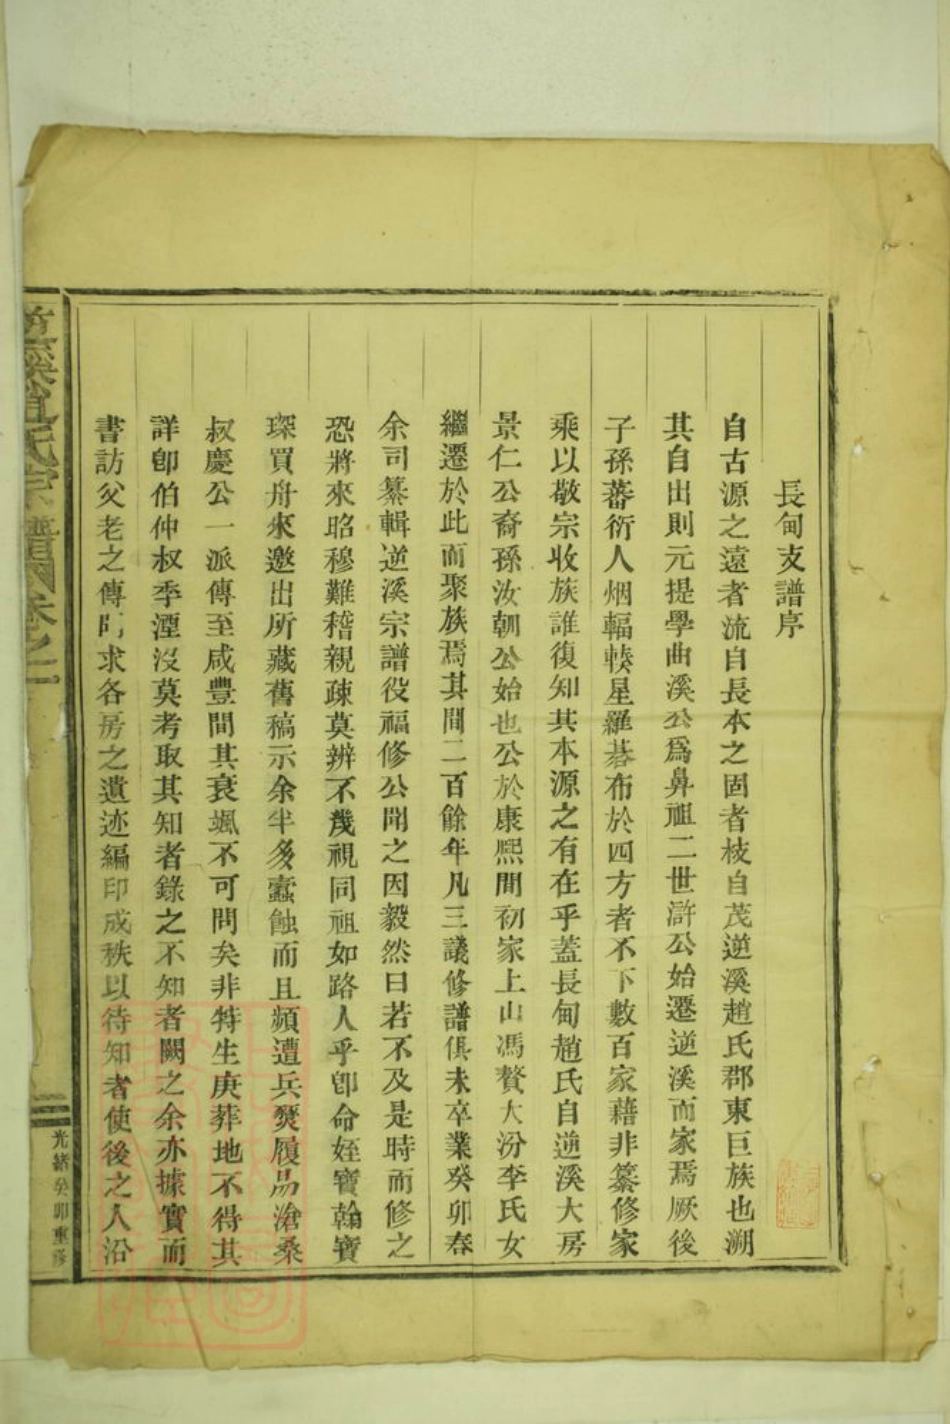 長甸支譜序
自古源之遠者流自長本之固者枝自茂逆溪趙氏郡東巨族也溯
其自出則元提學曲溪公爲鼻祖二世滸公始遷逆溪而家焉厥後
子孫蕃衍人烟輻輳星羅碁布於四方者不下數百家藉非纂修家
乘以敬宗收族誰復知其本源之有在乎蓋長甸趙氏自逆溪大房
景仁公裔孫汝朝公始也公於康熙間初家上山馮贅大汾李氏女
繼遷於此而聚族焉其間二百餘年凡三議修譜俱未卒業癸卯春
余司纂輯逆溪宗譜役福修公聞之因毅然曰若不及是時而修之
恐將來昭穆難稽親疎莫辨不幾視同祖如路人乎卽命姪寶翰寶
琛買舟來邀出所藏舊稿示余半多蠹蝕而且頻遭兵燹屨易滄桑
叔慶公一派傳至咸豐間其衰颯不可問矣非特生庚葬地不得其
詳卽伯仲叔季湮沒莫考取其知者錄之不知者闕之余亦據實而
書訪父老之傳聞求各房之遺迹編印成秩以待知者使後之人沿
溪趙氏宗譜 卷之一
光緒癸卯重修